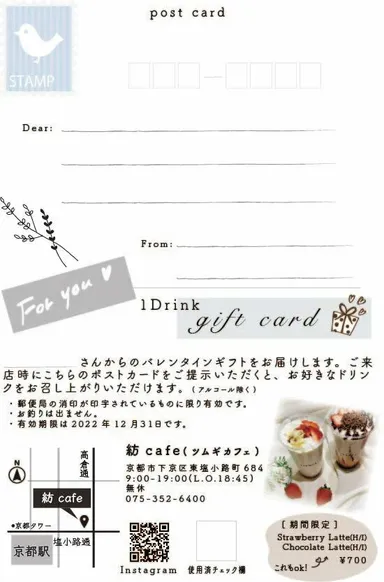 post card
STAMP
Dear:
From:
For you
1Drink
gift card
さんからのバレンタインギフトをお届けします。ご来
店時にこちらのポストカードをご提示いただくと、お好きなドリン
クをお召し上がりいただけます。(アルコール除く)
・郵便局の消印が印字されているものに限り有効です。
・お釣りは出ません。
・有効期限は2022年12月31日です。
N
高倉通
紡 cafe
●京都タワー
京都駅
塩小路通
紡 cafe(ツムギカフェ)
京都市下京区東塩小路町 684
9:00-19:00(L.O.18:45)
無休
075-352-6400
Instagram
使用済チェック欄
[ 期間限定 ]
Strawberry Latte(H/I)
Chocolate Latte(H/I)
これもok!
¥700